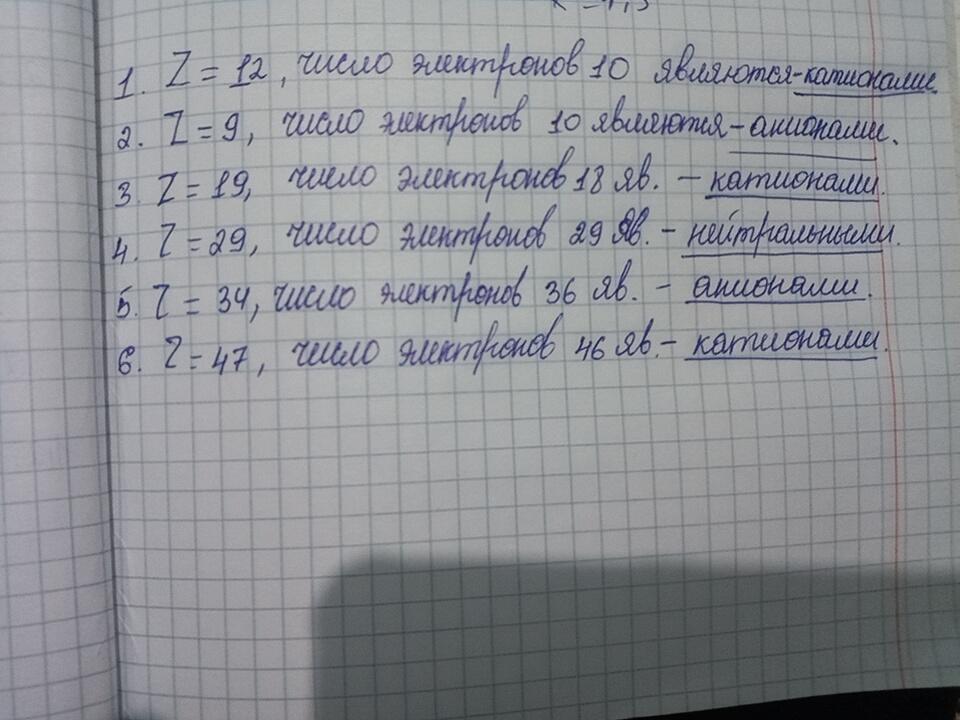 1. Z = 12, число электронов 10 являются - катионами.
2. Z = 9, число электронов 10 являются - анионами.
3. Z = 19, число электронов 18 яв. - катионами.
4. Z = 29, число электронов 29 яв. - нейтральными.
5. Z = 34, число электронов 36 яв. - анионами.
6. Z = 47, число электронов 46 яв. - катионами.